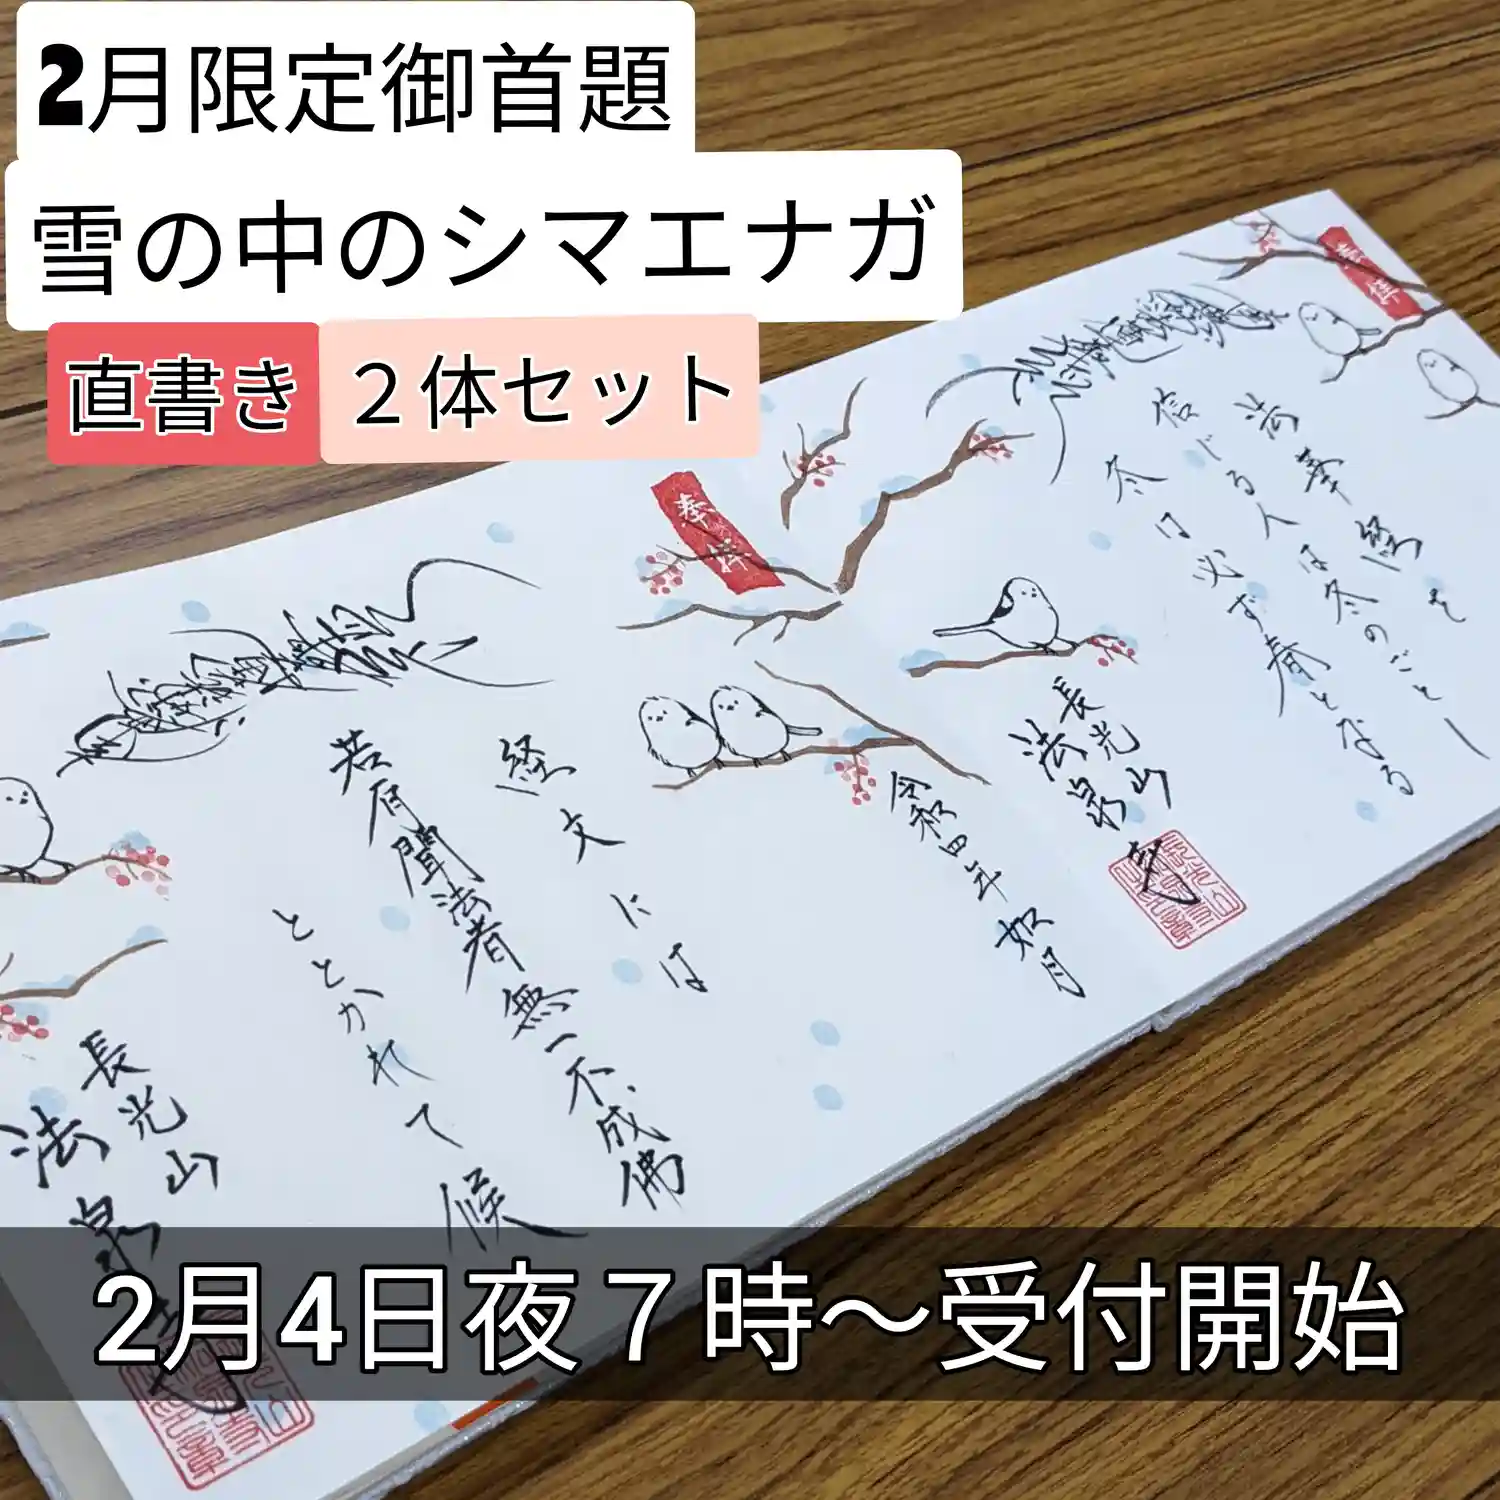 2月限定御首題
雪の中のシマエナガ
直書き
２体セット
奉拝
法華経を
信じる人は冬のごとし
冬は必ず春となる
長光山
法泉寺
令和四年如月
奉拝
経文には
若有聞法者無一不成佛
ととかれて候
長光山
法泉寺
2月4日夜７時〜受付開始